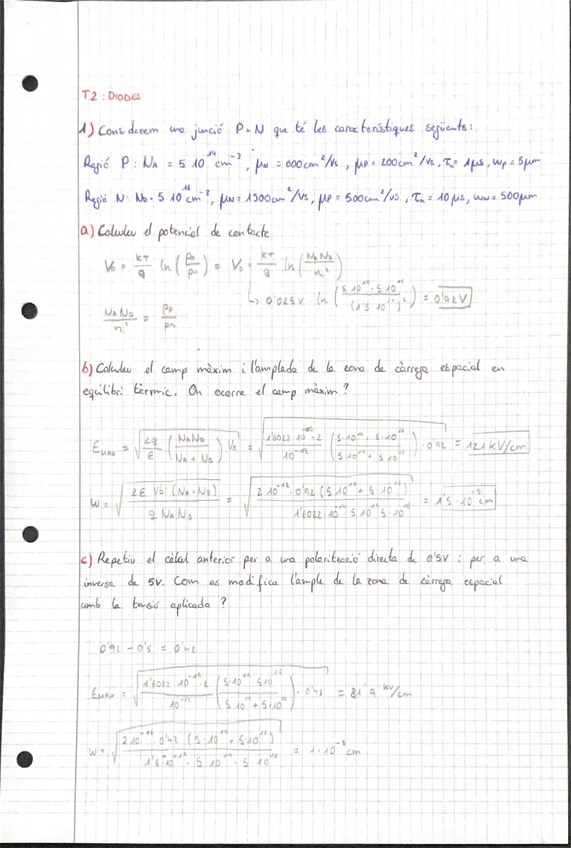 T2: DIODES
1) Considerem una junció P-N que té les característiques següents:
Regió P: NA = 5 10^19 cm^-3, μN = 600cm^2/Vs, μP = 200cm^2/Vs, τn = 1μs, wp = 5μm
Regió N: ND = 5 10^16 cm^-3, μN = 1300cm^2/Vs, μP = 500cm^2/Vs, τn = 10μs, wN = 500μm
a) Calculeu el potencial de contacte
V0 = kT/q ln(pp/pn) = V0 = kT/q ln(NA ND/ni^2)
↳ 0'025V · ln(5 10^19 · 5 10^16/(1'5 10^10)^2) = 0'92V
NA ND/ni^2 = pp/pn
b) Calculeu el camp màxim i l'amplada de la zona de càrrega espacial en
equilibri tèrmic. On ocorre el camp màxim?
EMAX = √(2q/ε (NA ND/NA + ND) V0) = √(1'6022 10^-19 · 2/10^-12 (5·10^19 · 5·10^16/5·10^19 + 5·10^16) · 0'92) = 121 kV/cm
W = √(2ε Vbi (NA+ND)/q NA ND) = √(2 10^-12 · 0'92 (5 10^19 + 5 10^16)/1'6022 10^-19 5 10^19 5·10^16) = 1'5 · 10^-5 cm
c) Repetiu el càlcul anterior per a una polarització directa de 0'5V i per a una
inversa de 5V. Com es modifica l'ample de la zona de càrrega espacial
amb la tensió aplicada?
0'92 - 0'5 = 0'42
EMAX = √(1'6022 10^-19 · 2/10^-12 (5·10^19 5·10^16/5·10^19 + 5·10^16) · 0'42) = 81'9 kV/cm
W = √(2 10^-12 0'42 (5·10^19 + 5·10^16)/1'6·10^-19 · 5·10^19 · 5·10^16) = 1·10^-5 cm